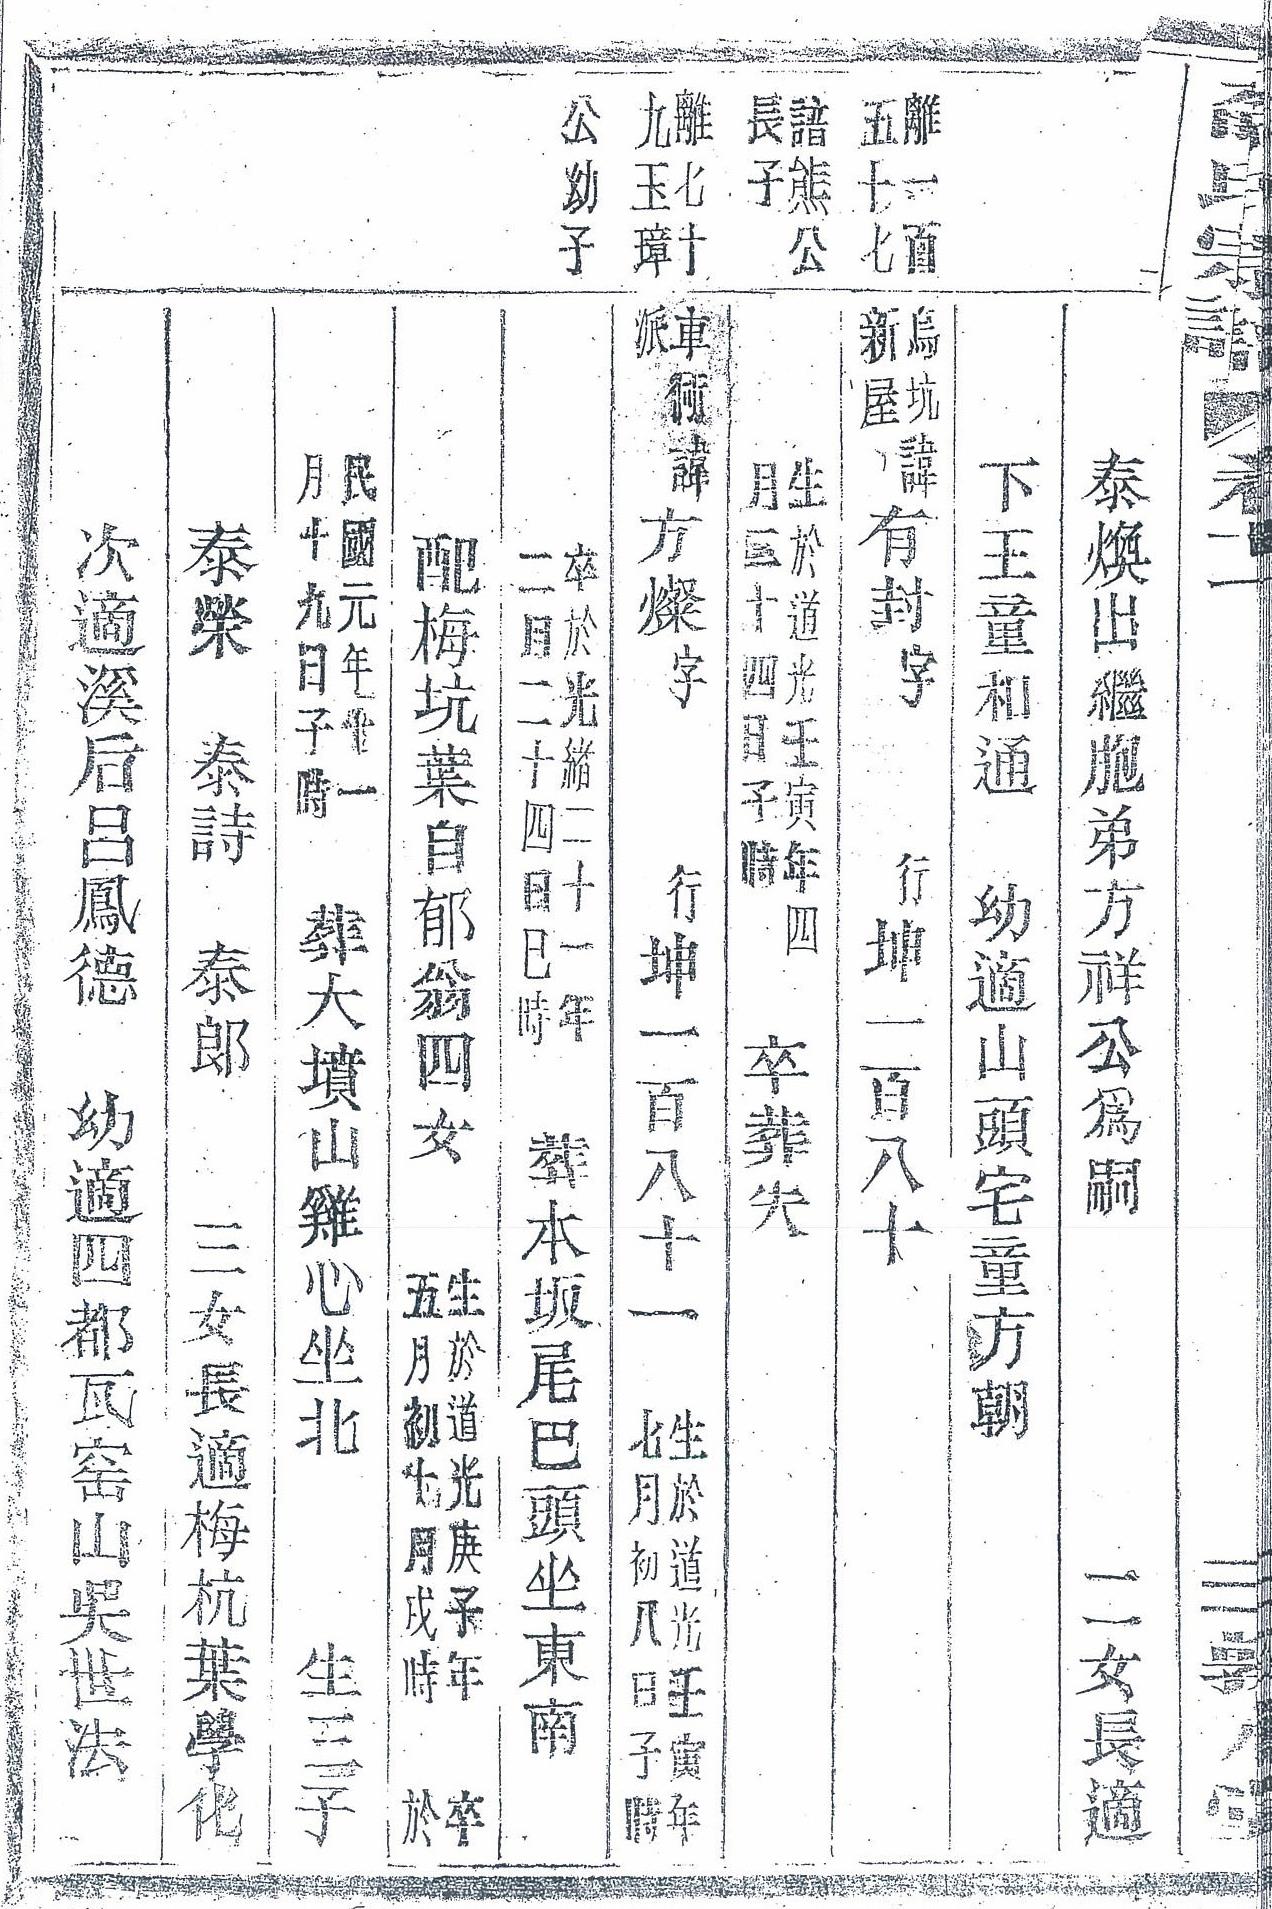 氏宗譜 卷十一
泰煥出繼胞弟方祥公為嗣 二女長適
下王童和通 幼適山頭宅童方朝
離一百
五十七
烏坑
新屋
諱有封字 行坤一百八十
諳熊公
長子
生於道光壬寅年四
月二十四日子時
卒葬失
離七十
九玉璋
車衕
派
諱方燦字 行坤一百八十一
生於道光壬寅年
七月初八日子時
公幼子
卒於光緒二十一年
二月二十四日巳時
葬本坂尾巴頭坐東南
配梅坑葉自郁翁四女
生於道光庚子年
五月初七日戌時
卒
於
民國元年十一
月十九日子時
葬大墳山雞心坐北 生三子
泰榮 泰詩 泰郎 三女長適梅杭葉學化
次適溪后呂鳳德 幼適四都瓦窑山吳世法